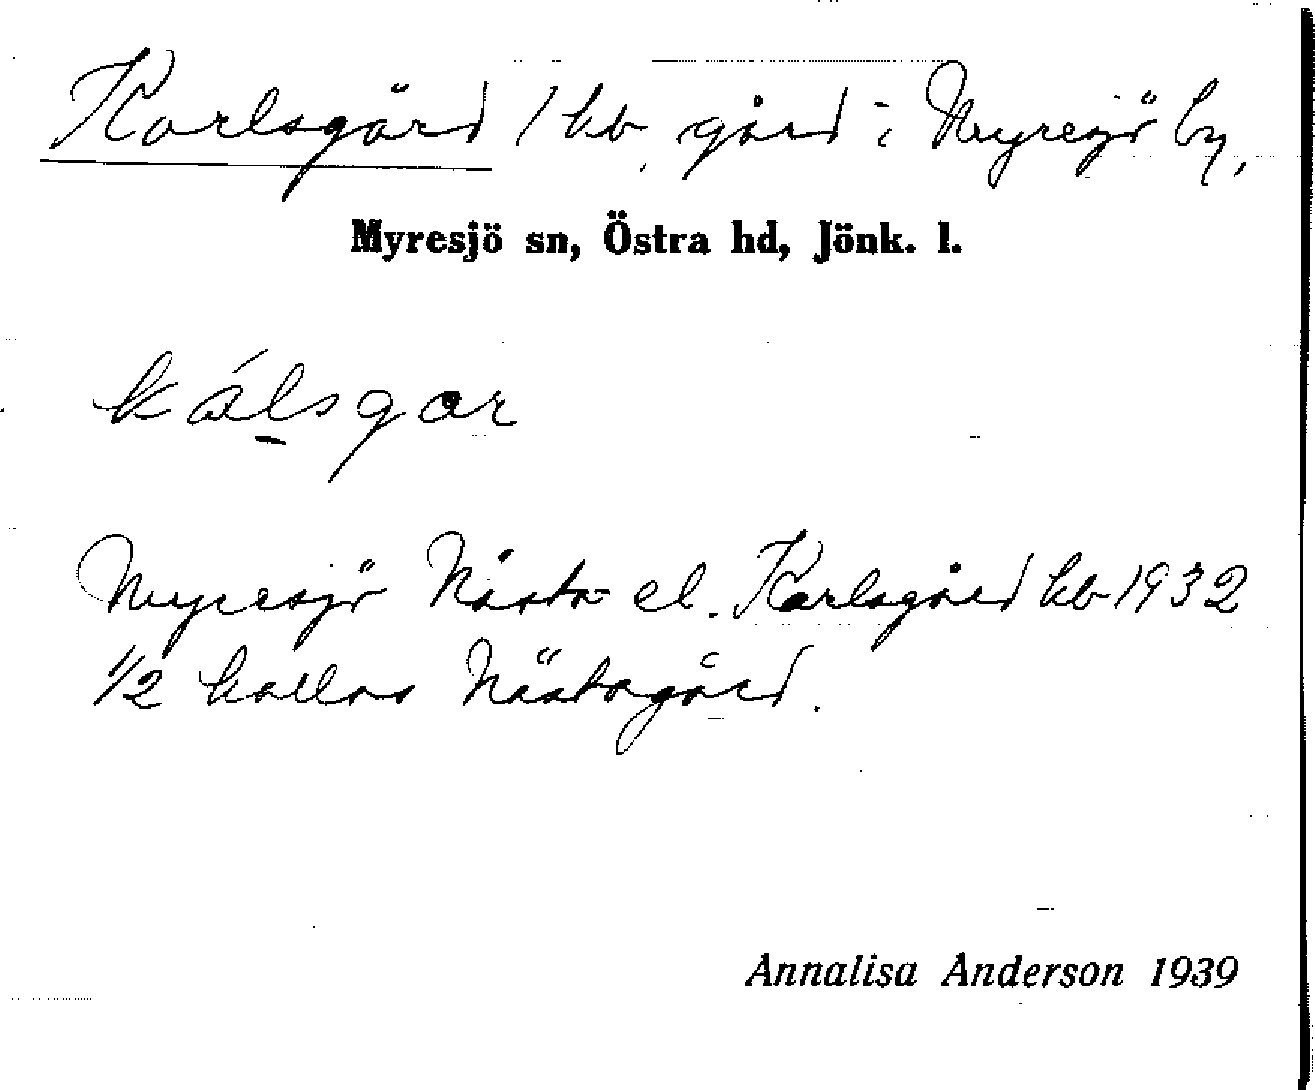 Karlsgård 1 hb, gård i Myresjö by,
Myresjö sn, Östra hd, Jönk. l.
kálsgar
Myresjö Nästa el. Karlsgård hb 1932
1/2 kallas Nästagård.
Annalisa Anderson 1939